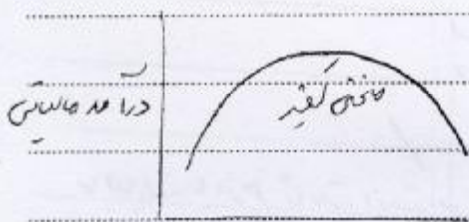 درآمد مالیاتی
منحنی لفر